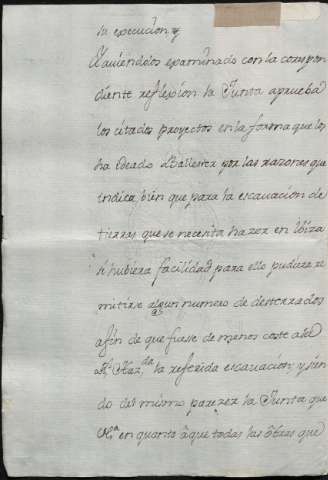 la execucion, y
haviendolos examinado con la correspon
diente reflexîon la Junta aprueba
los citados proyectos en la forma que los
ha ideado Ballester por las razones que
indica, bien que para la escavacion de
tierras que se necesita hazer en Ibiza
si hubiera facilidad para ello pudiera re
mitirse algun numero de desterrados
afin de que fuese de menos coste ala
Rl. Hazda la referida escavacion; y sien
do del mismo parezer la Junta que
en quanto âque todas las ôbras que